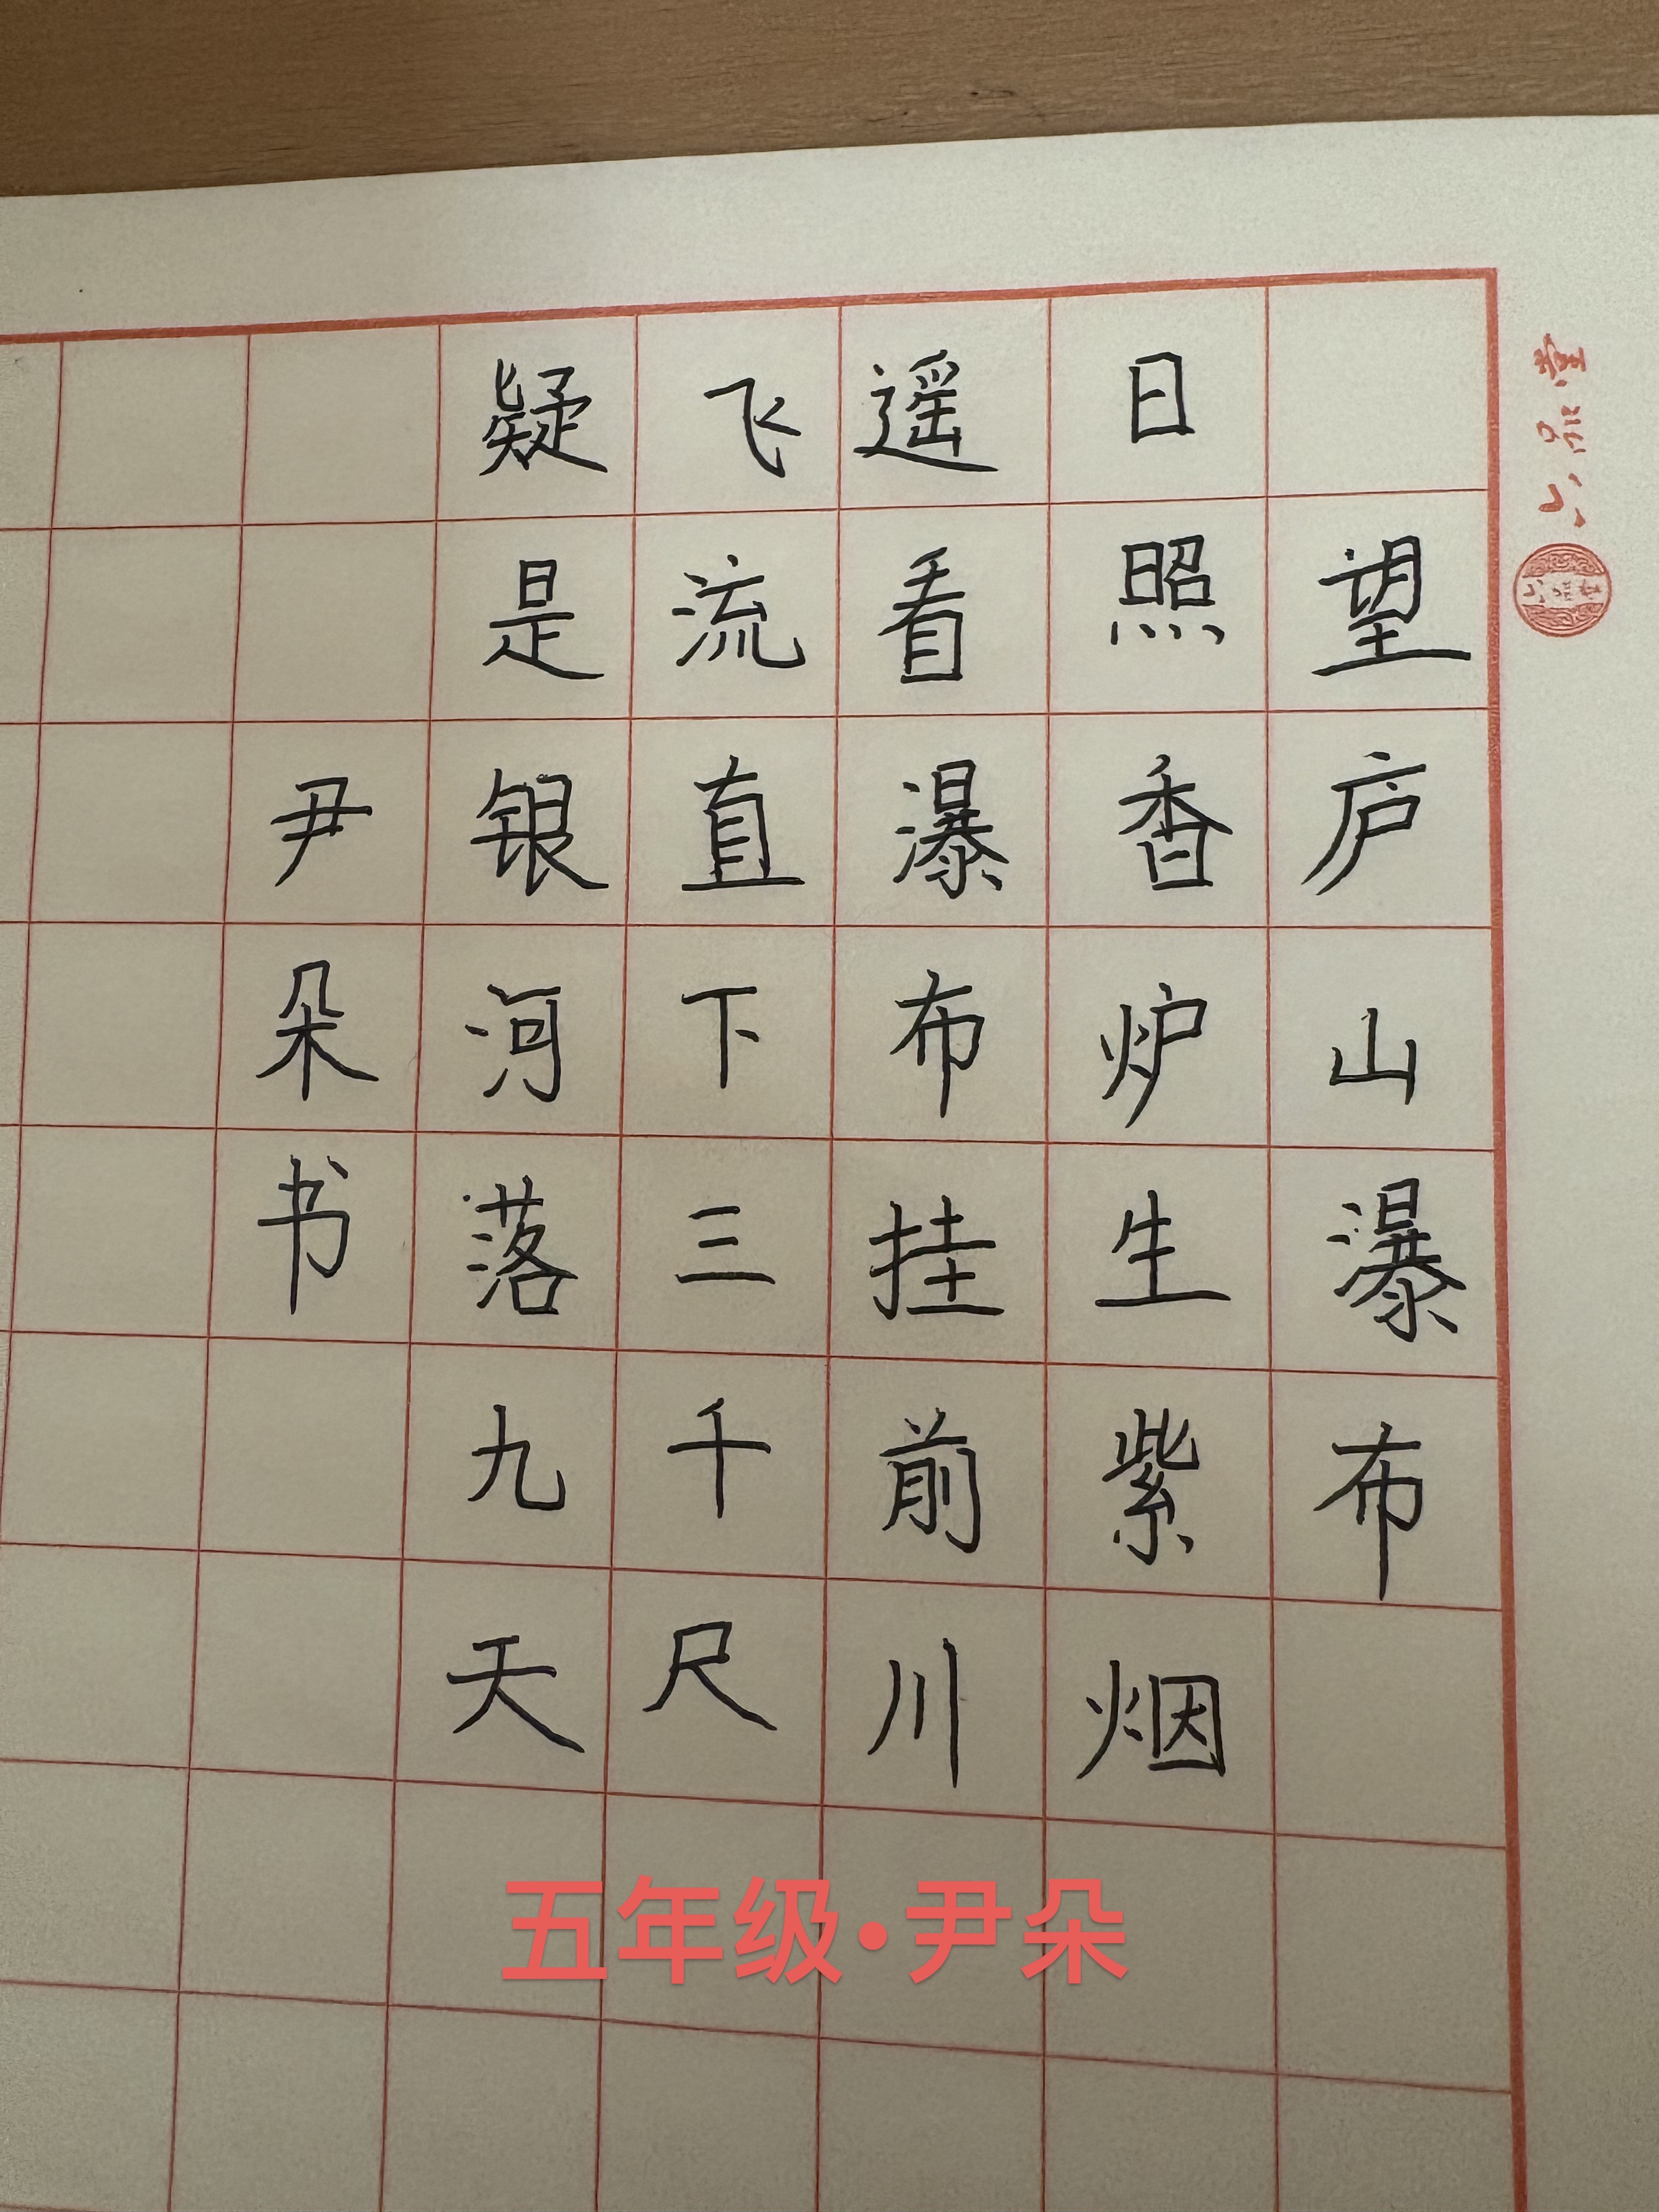 六品堂
六品堂
望庐山瀑布
日照香炉生紫烟
遥看瀑布挂前川
飞流直下三千尺
疑是银河落九天
尹朵书
五年级·尹朵